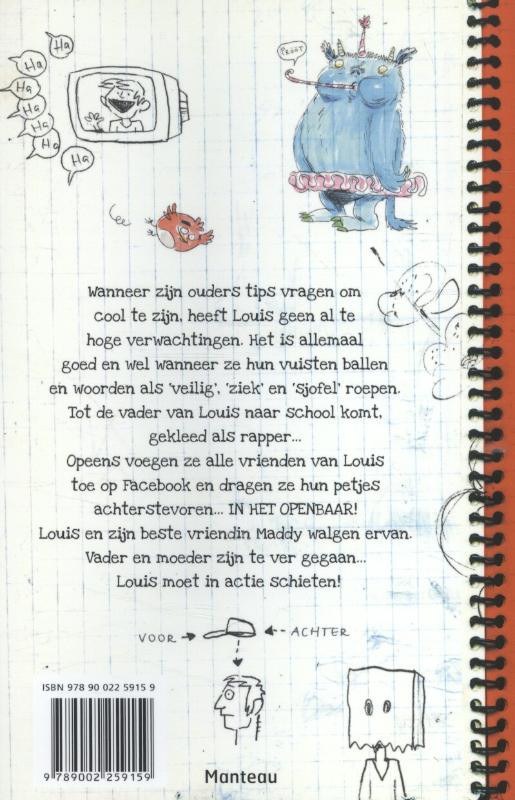 Ha
Ha
Ha
Ha
Ha
Ha
Ha
PRÖÖT
Wanneer zijn ouders tips vragen om
cool te zijn, heeft Louis geen al te
hoge verwachtingen. Het is allemaal
goed en wel wanneer ze hun vuisten ballen
en woorden als 'veilig', 'ziek' en 'sjofel' roepen.
Tot de vader van Louis naar school komt,
gekleed als rapper...
Opeens voegen ze alle vrienden van Louis
toe op Facebook en dragen ze hun petjes
achterstevoren... IN HET OPENBAAR!
Louis en zijn beste vriendin Maddy walgen ervan.
Vader en moeder zijn te ver gegaan...
Louis moet in actie schieten!
VOOR
ACHTER
ISBN 978 90 022 5915 9
9 789002 259159
Manteau